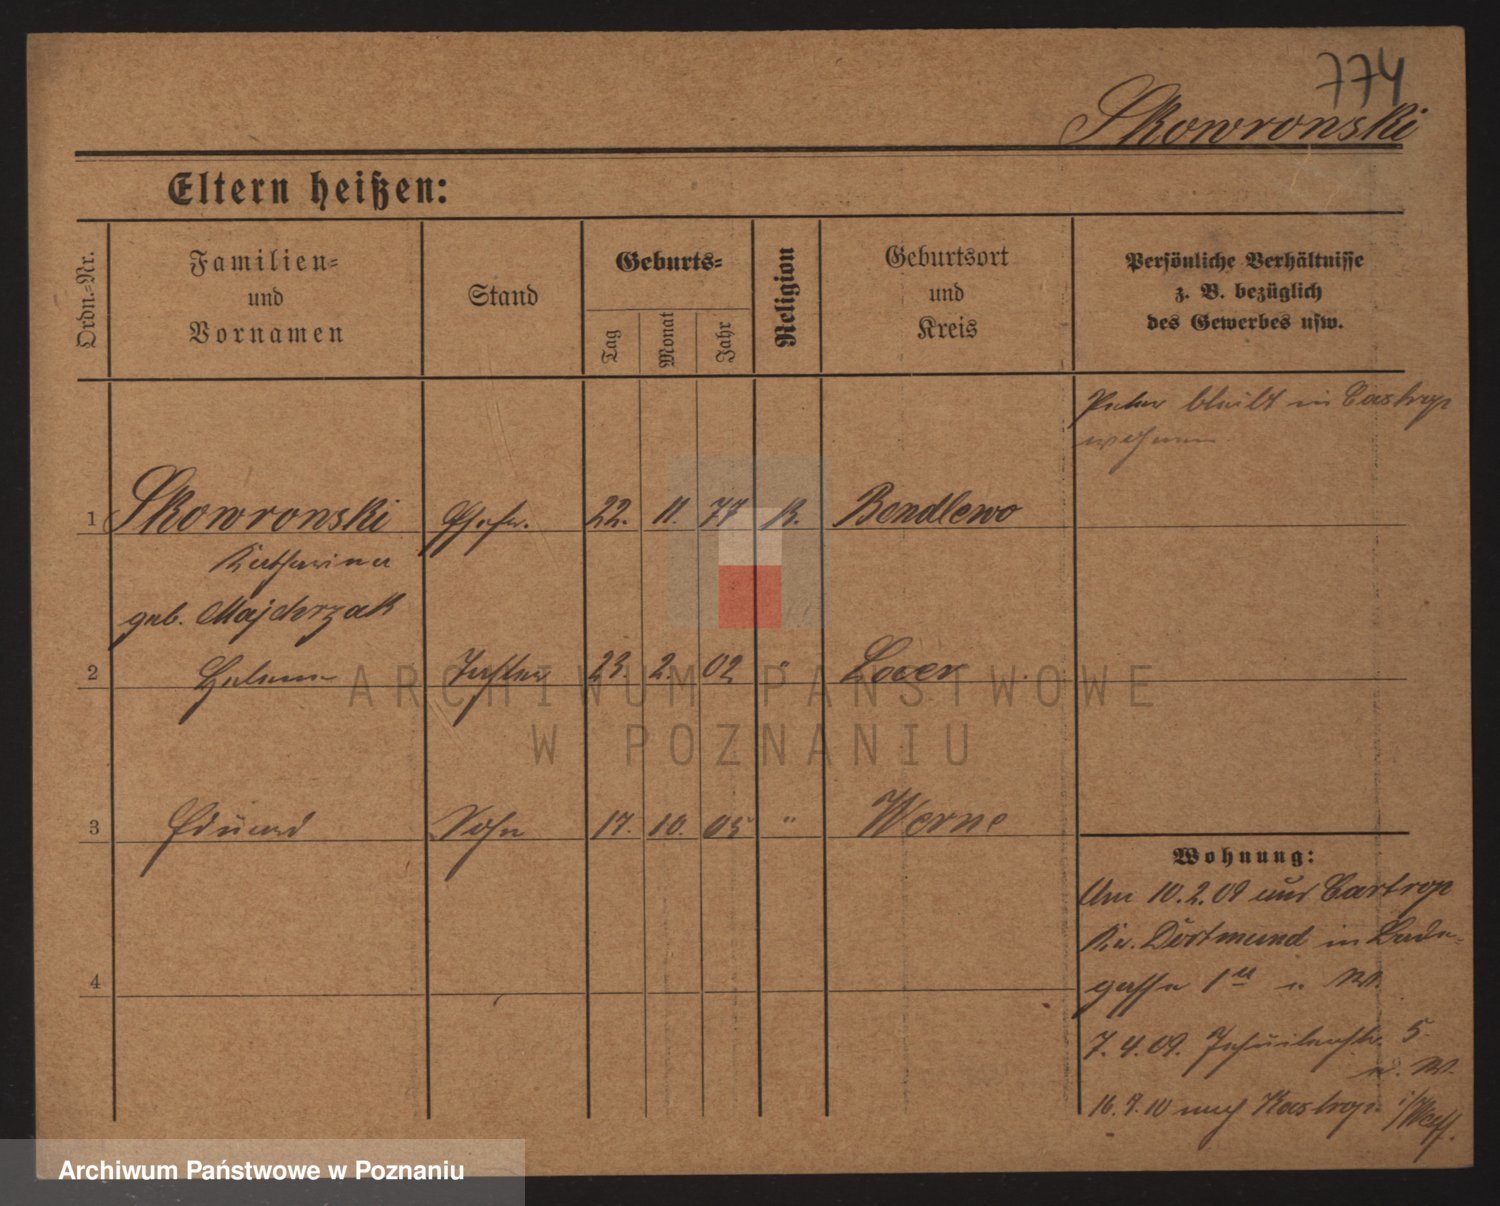 774
Skowronski
Eltern heißen:
Ordn.=Nr.
Familien=
und
Vornamen
Stand
Geburts=
Tag
Monat
Jahr
Religion
Geburtsort
und
Kreis
Persönliche Verhältnisse
z. B. bezüglich
des Gewerbes usw.
Vater bleibt in Castrop
wohnen
1 Skowronski Ehefr. 22. 11. 77 K. Bendlewo
Katharina
geb. Majcherzak
2 Helene Tochter 23. 2. 02 " Loeer
3 Eduard Sohn 17. 10. 05 " Werne
4
Wohnung:
Am 10.2.09 aus Castrop
Kr. Dortmund in
gasse 1 a
7.4.09. Jesuitenstr. 5
16.7.10 nach Kastrop i/Westf.
ARCHIWUM PAŃSTWOWE
W POZNANIU
Archiwum Państwowe w Poznaniu